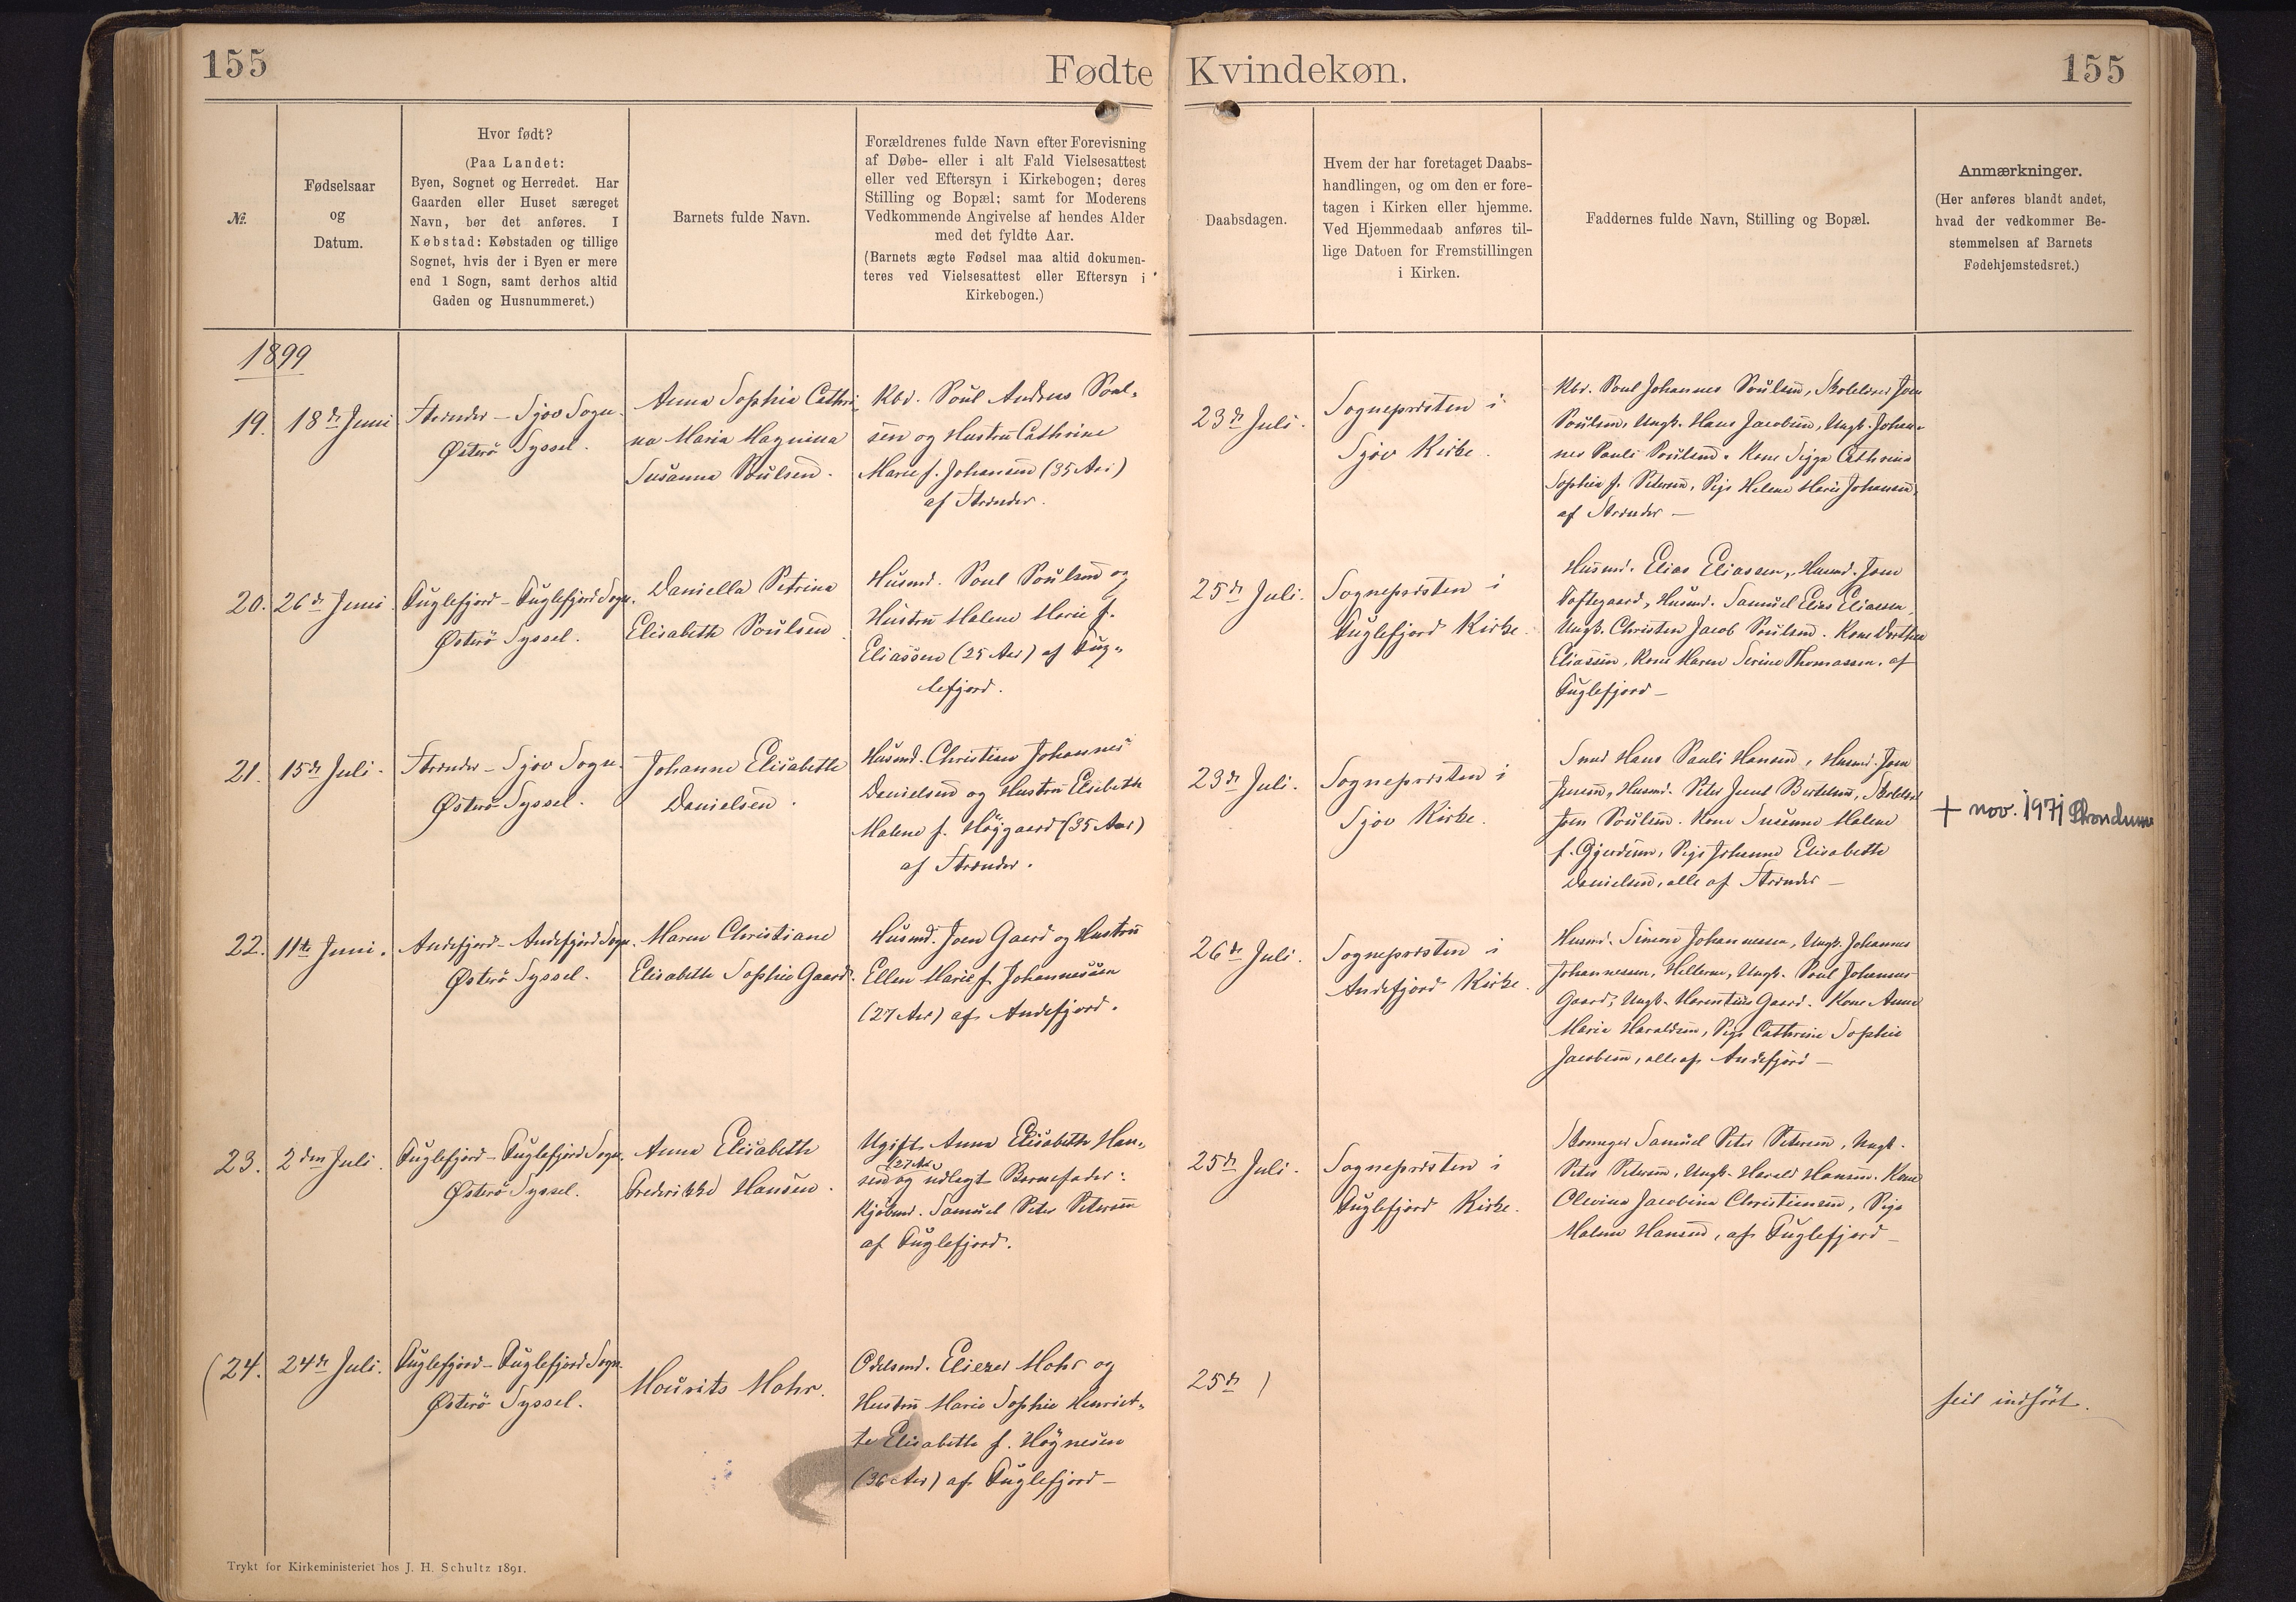 155
Fødte
Kvindekøn.
155
№.
Fødselsaar
og
Datum.
Hvor født?
(Paa Landet:
Byen, Sognet og Herredet. Har
Gaarden eller Huset særeget
Navn, bør det anføres. I
Købstad: Købstaden og tillige
Sognet, hvis der i Byen er mere
end 1 Sogn, samt derhos altid
Gaden og Husnummeret.)
Barnets fulde Navn.
Forældrenes fulde Navn efter Forevisning
af Døbe- eller i alt Fald Vielsesattest
eller ved Eftersyn i Kirkebogen; deres
Stilling og Bopæl; samt for Moderens
Vedkommende Angivelse af hendes Alder
med det fyldte Aar.
(Barnets ægte Fødsel maa altid dokumen-
teres ved Vielsesattest eller Eftersyn i
Kirkebogen.)
Daabsdagen.
Hvem der har foretaget Daabs-
handlingen, og om den er fore-
tagen i Kirken eller hjemme.
Ved Hjemmedaab anføres til-
lige Datoen for Fremstillingen
i Kirken.
Faddernes fulde Navn, Stilling og Bopæl.
Anmærkninger.
(Her anføres blandt andet,
hvad der vedkommer Be-
stemmelsen af Barnets
Fødehjemstedsret.)
1899
19.
18de Juni
Strænder - Sjov Sogn.
Østerö Syssel.
Anna Sophia Cathri-
na Maria Magnina
Susanna Poulsen.
Kbd. Poul Andreas Poul-
sen og Hustru Cathrine
Marie f. Johansen (35 Aar)
af Strænder.
23de Juli.
Sognepræsten i
Sjov Kirke.
Kbd. Poul Johannes Poulsen, Skolelærer Joen
Poulsen, Ungk. Hans Jacobsen, Ungk. Johan-
nes Pauli Poulsen. Kone Sigga Cathrine
Sophia f. Petersen, Pige Helene Marie Johansen,
af Strænder -
20.
26de Juni.
Fuglefjord - Fuglefjord Sogn.
Østerö Syssel.
Daniella Petrina
Elisabeth Poulsen.
Husmd. Poul Poulsen og
Hustru Malene Marie f.
Eliassen (25 Aar) af Fug-
lefjord.
25de Juli.
Sognepræsten i
Fuglefjord Kirke.
Husmd. Elias Eliassen, Husmd. Joen
Toftegaard, Husmd. Samuel Elias Eliassen,
Ungk. Christen Jacob Poulsen. Kone Dorthea
Eliassen, Kone Maren Serine Thomassen, af
Fuglefjord -
21.
15de Juli.
Strænder - Sjov Sogn.
Østerö Syssel.
Johanne Elisabeth
Danielsen.
Husmd. Christian Johannes
Danielsen og Hustru Elsebeth
Malene f. Højgaard (35 Aar)
af Strænder.
23de Juli.
Sognepræsten i
Sjov Kirke.
Smed Hans Pauli Hansen, Husmd. Joen
Jensen, Husmd. Peter Juul Bertelsen, Skolelærer
Joen Poulsen. Kone Susanne Malene
f. Gjerdsen, Pige Johanne Elisabeth
Danielsen, alle af Strænder -
+ nov. 1971
22.
11te Juni.
Andefjord - Andefjord Sogn.
Østerö Syssel.
Maren Christiane
Elisabeth Sophie Gaard.
Husmd. Joen Gaard og Hustru
Ellen Marie f. Johannessen
(27 Aar) af Andefjord.
26de Juli.
Sognepræsten i
Andefjord Kirke.
Husmd. Simon Johannesen, Ungk. Johannes
Johannesen, Hellerne, Ungk. Poul Johannes
Gaard, Ungk. Gaard. Kone Anne
Marie Haraldsen, Pige Cathrine Sophie
Jacobsen, alle af Andefjord -
23.
2den Juli.
Fuglefjord - Fuglefjord Sogn.
Østerö Syssel.
Anna Elisabeth
Frederikke Hansen.
Ugift Anna Elisabeth Han-
(27 Aar)
sen og udlagt Barnefader:
Kjöbmd. Samuel Peter Petersen
af Fuglefjord.
25de Juli.
Sognepræsten i
Fuglefjord Kirke.
Samuel Peter Petersen, Ungk.
Peter Petersen, Ungk. Harald Hansen. Kone
Olevina Jacobina Christiansen, Pige
Malene Hansen, af Fuglefjord -
(24.
24de Juli.
Fuglefjord - Fuglefjord Sogn.
Østerö Syssel.
Mourits Mohr.
Odelsmd. Eliezer Mohr og
Hustru Marie Sophie Henriet-
te Elisabeth f. Høgnesen
(36 Aar) af Fuglefjord -
25de )
feil indført.
Trykt for Kirkeministeriet hos J. H. Schultz 1891.